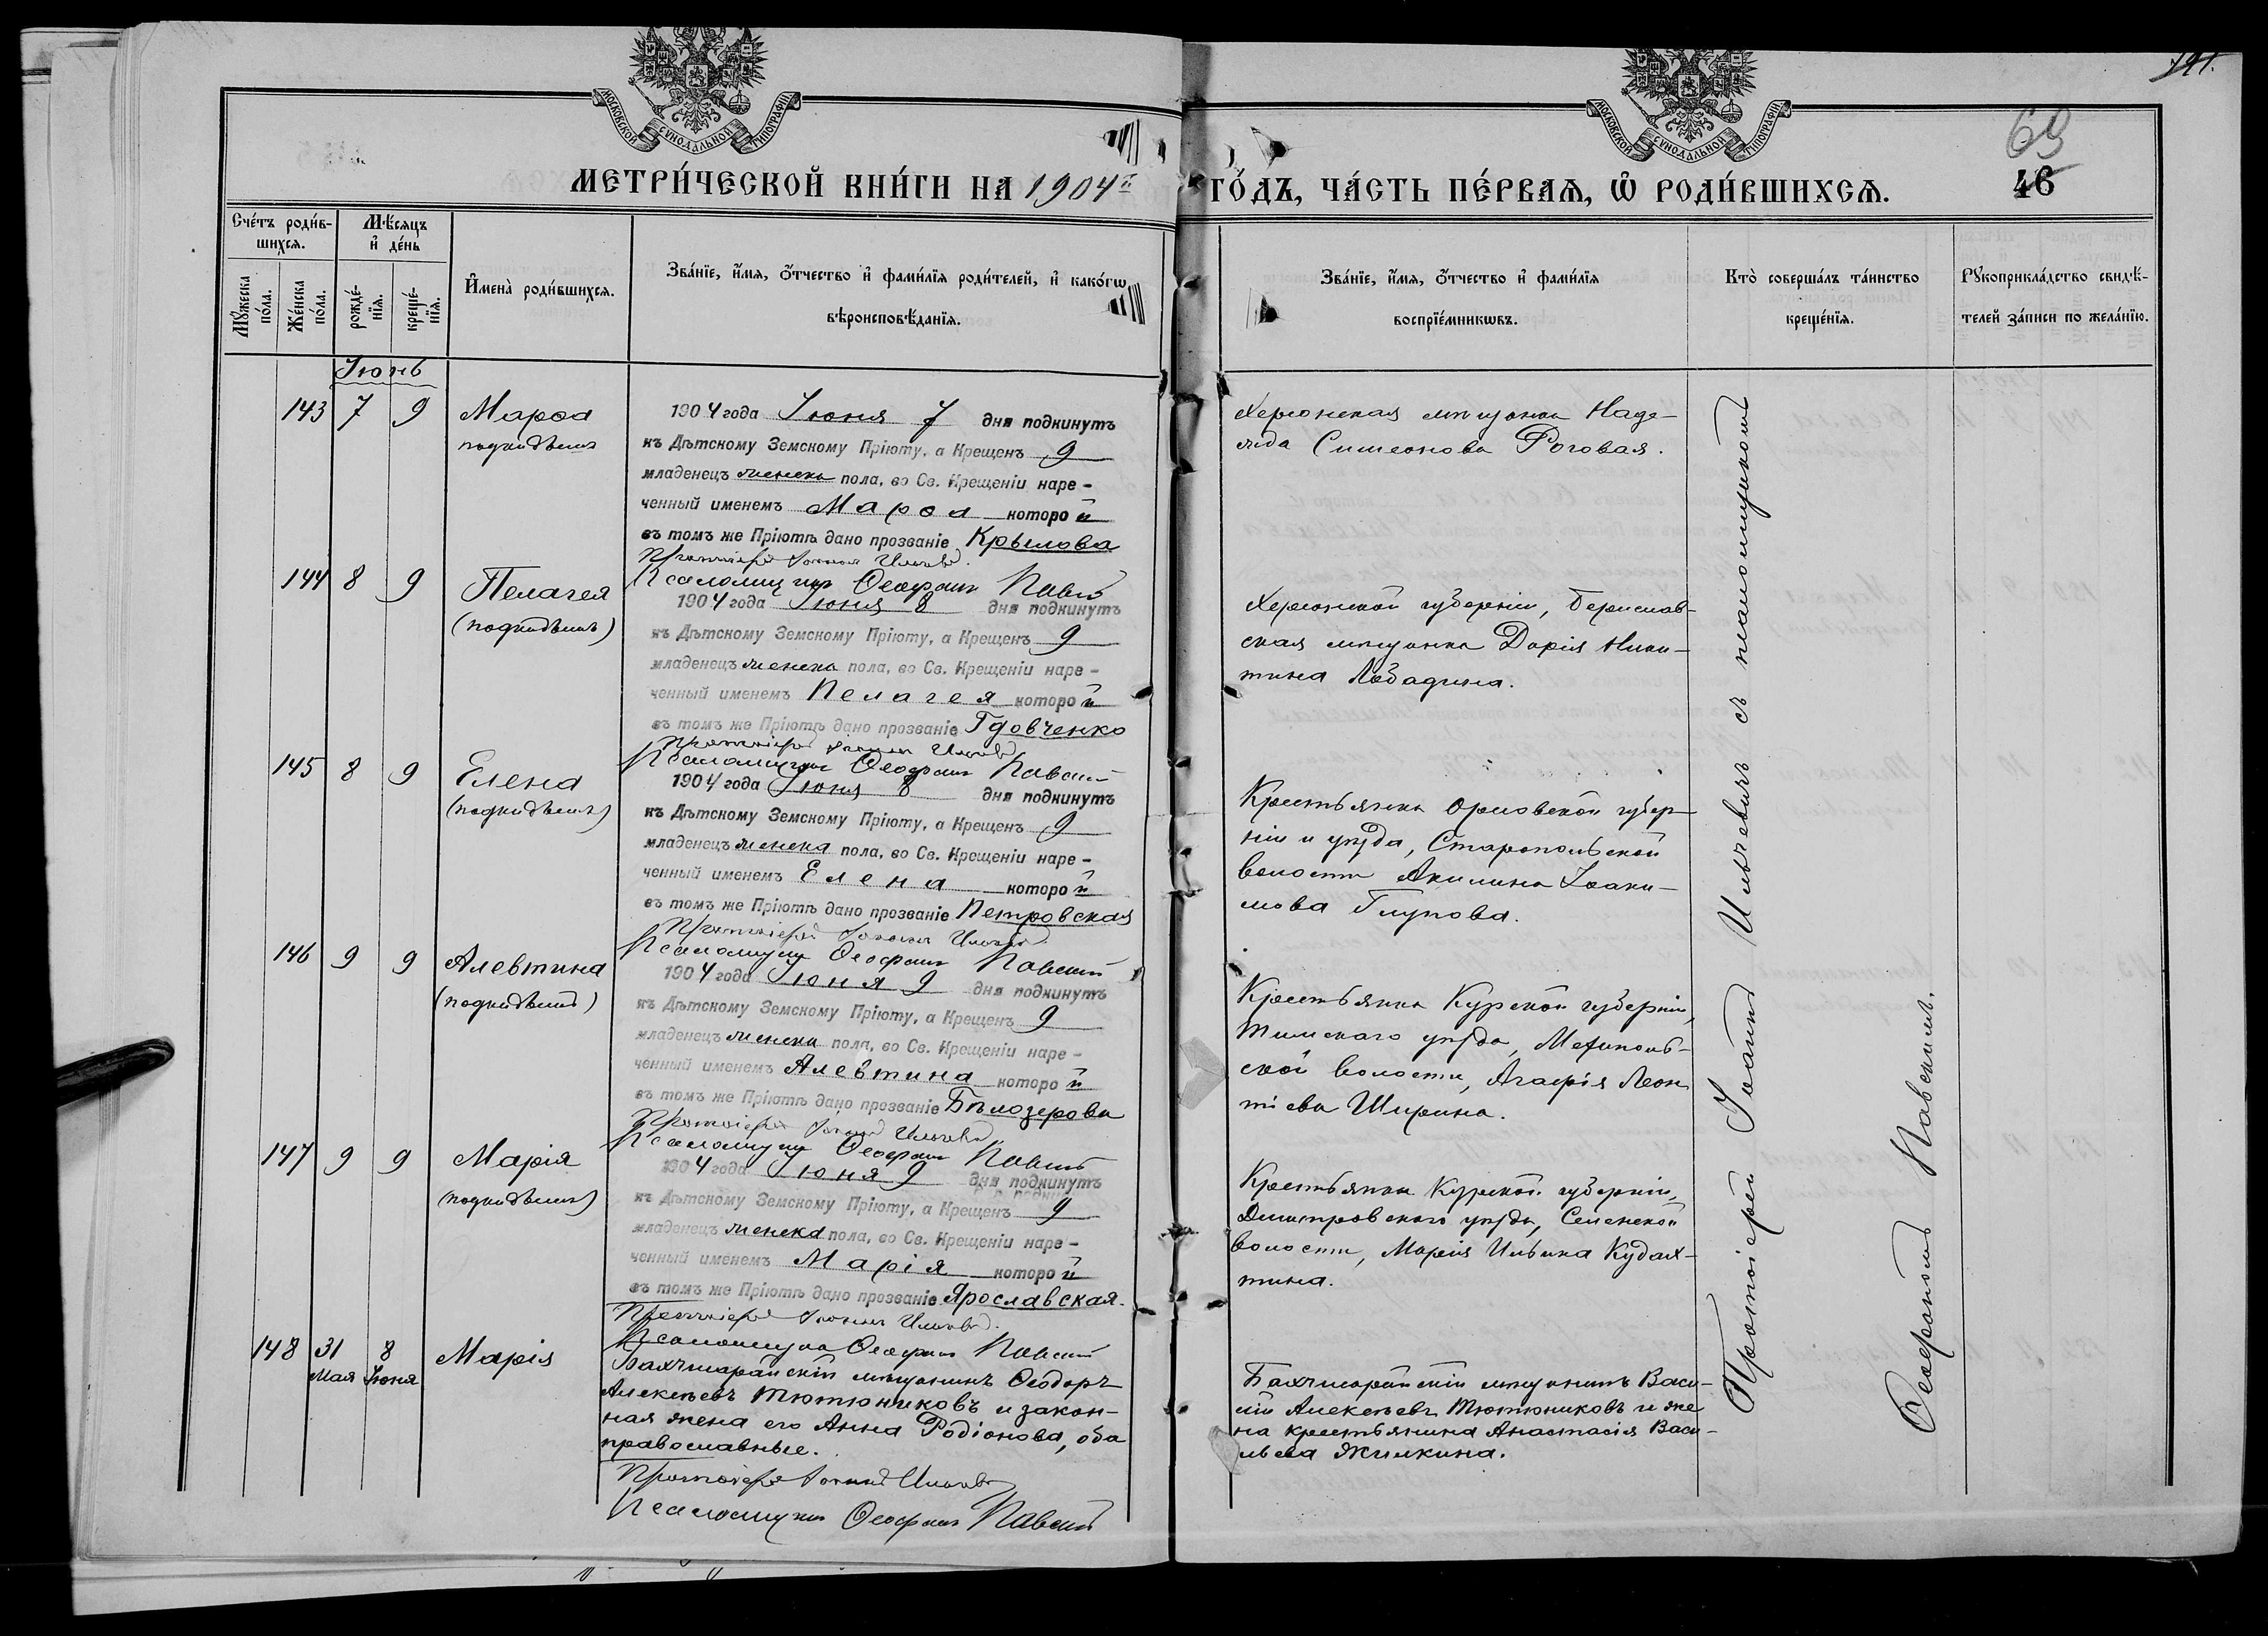 МОСКОВСКОЙ СѴНОДАЛЬНОЙ ТИПОГРАФІИ
МЕТРИ́ЧЕСКОЙ КНИ́ГИ НА 1904й
Сче́тъ роди́в-
шихсѧ.
Мѣ́сѧцъ
и҆ де́нь
Мꙋ́жеска
по́ла.
Же́нска
по́ла.
рожде́-
нїѧ.
креще́-
нїѧ.
И҆мена̀ роди́вшихсѧ.
Зва́нїе, и҆́мѧ, ѻ҆́тчество и҆ фами́лїѧ роди́телей, и҆ како́гѡ
вѣроисповѣ́данїѧ.
Іюнь
143 7 9 Марѳа
подкидышъ
1904 года Іюня 7 дня подкинутъ
къ Дѣтскому Земскому Пріюту, а Крещенъ 9
младенецъ женска пола, во Св. Крещеніи наре-
ченный именемъ Марѳа которой
въ томъ же Пріютѣ дано прозваніе Крылова
Протоіерей Іоаннъ Ильчевичъ
Псаломщикъ Ѳеофанъ Павскій
144 8 9 Пелагея
(подкидышъ)
1904 года Іюня 8 дня подкинутъ
къ Дѣтскому Земскому Пріюту, а Крещенъ 9
младенецъ женска пола, во Св. Крещеніи наре-
ченный именемъ Пелагея которой
въ томъ же Пріютѣ дано прозваніе Гдовченко
Протоіерей Іоаннъ Ильчевичъ
Псаломщикъ Ѳеофанъ Павскій
145 8 9 Елена
(подкидышъ)
1904 года Іюня 8 дня подкинутъ
къ Дѣтскому Земскому Пріюту, а Крещенъ 9
младенецъ женска пола, во Св. Крещеніи наре-
ченный именемъ Елена которой
въ томъ же Пріютѣ дано прозваніе Петровская
Протоіерей Іоаннъ Ильчевичъ
Псаломщикъ Ѳеофанъ Павскій
146 9 9 Алевтина
(подкидышъ)
1904 года Іюня 9 дня подкинутъ
къ Дѣтскому Земскому Пріюту, а Крещенъ 9
младенецъ женска пола, во Св. Крещеніи наре-
ченный именемъ Алевтина которой
въ томъ же Пріютѣ дано прозваніе Бѣлозерова
Протоіерей Іоаннъ Ильчевичъ
Псаломщикъ Ѳеофанъ Павскій
147 9 9 Марія
(подкидышъ)
1904 года Іюня 9 дня подкинутъ
къ Дѣтскому Земскому Пріюту, а Крещенъ 9
младенецъ женска пола, во Св. Крещеніи наре-
ченный именемъ Марія которой
въ томъ же Пріютѣ дано прозваніе Ярославская.
Протоіерей Іоаннъ Ильчевичъ
Псаломщикъ Ѳеофанъ Павскій
148 31 8 Марія
Мая Іюня
Бахчисарайскій мѣщанинъ Ѳеодоръ
Алексѣевъ Тютюниковъ и закон-
ная жена его Анна Родіонова, оба
православные.
Протоіерей Іоаннъ Ильчевичъ
Псаломщикъ Ѳеофанъ Павскій
141.
МОСКОВСКОЙ СѴНОДАЛЬНОЙ ТИПОГРАФІИ
69
46
ГО́ДЪ, ЧА́СТЬ ПЕ́РВАѦ, Ѡ҆ РОДИ́ВШИХСѦ.
Зва́нїе, и҆́мѧ, ѻ҆́тчество и҆ фами́лїѧ
воспрїе́мникѡвъ.
Кто̀ соверша́лъ та́инство
креще́нїѧ.
Рꙋкоприкла́дство свидѣ́-
телей за́писи по жела́нїю.
Херсонская мѣщанка Наде-
жда Симеонова Роговая.
Херсонской губерніи, Берислав-
ская мѣщанка Дарія Ники-
тина Лебадина.
Крестьянка Орловской губер-
ніи и уѣзда, Старопольской
волости Акилина Іоаки-
мова Глупова.
Крестьянка Курской губерніи,
Тимскаго уѣзда,
ской волости, Агафія Леон
тіева Ширина.
Крестьянка Курской губерніи,
Дмитровскаго уѣзда, Селенской
волости, Марія Ильина
тина.
Бахчисарайскій мѣщанинъ Васи-
лій Алексѣевъ Тютюниковъ и же
на крестьянина Анастасія Васи-
льева Жилкина.
Протоіерей Іоаннъ Ильчевичъ съ псаломщикомъ
Ѳеофаномъ Павскимъ.